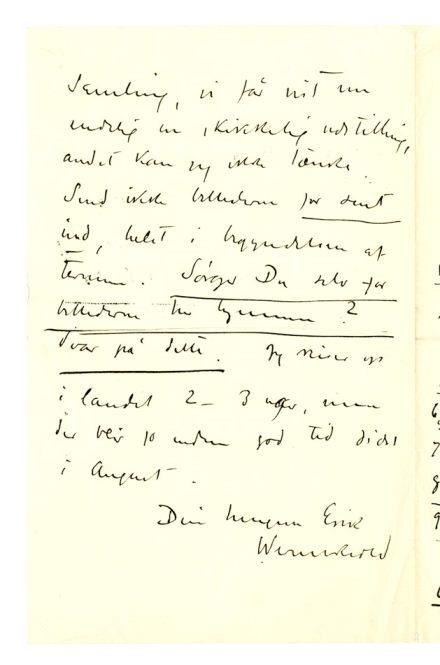 Samling, vi får vist nu
endelig en virkelig udstilling,
andet kan jeg ikke tænke.
Send ikke billederne for sent
ind, helst i begyndelsen af
Terminen. Sørger Du selv for
billederne her hjemme?
Svar på dette. Jeg reiser op
i landet 2 – 3 uger, men
der blir jo endnu god tid sidst
i August.
Din hengivne Erik
Werenskiold